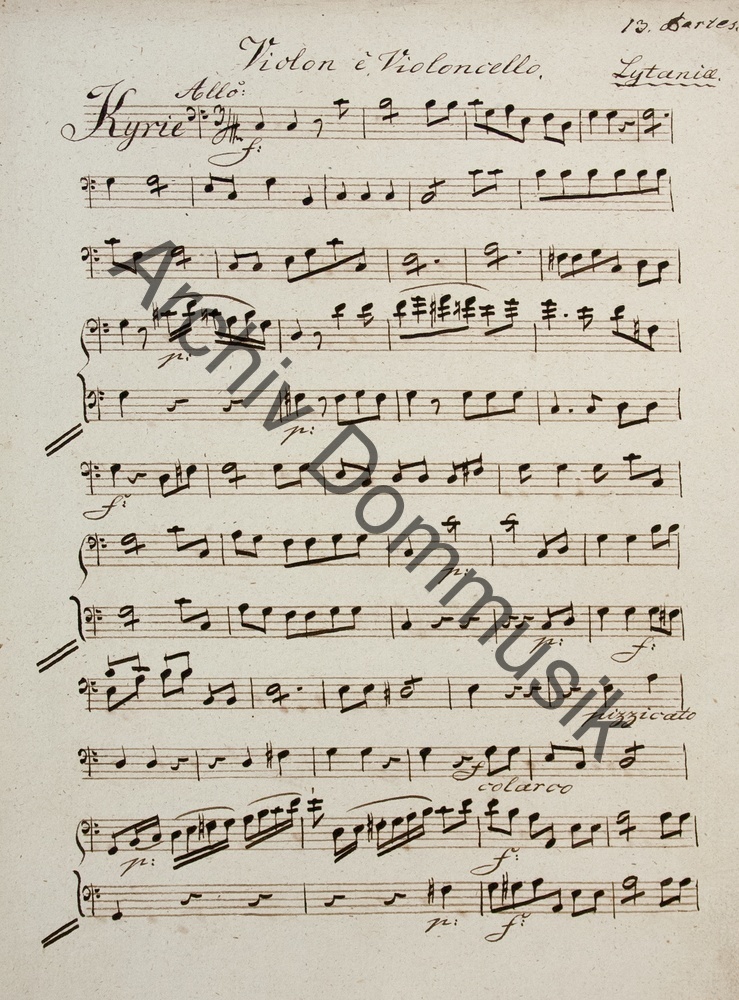 13. Partes.
Violon è Violoncello.
Lytaniæ.
Allo:
Kyrie
f:
p:
p:
f:
p:
p: f:
pizzicato
f
colarco
p: f:
p: f:
Archiv Dommusik